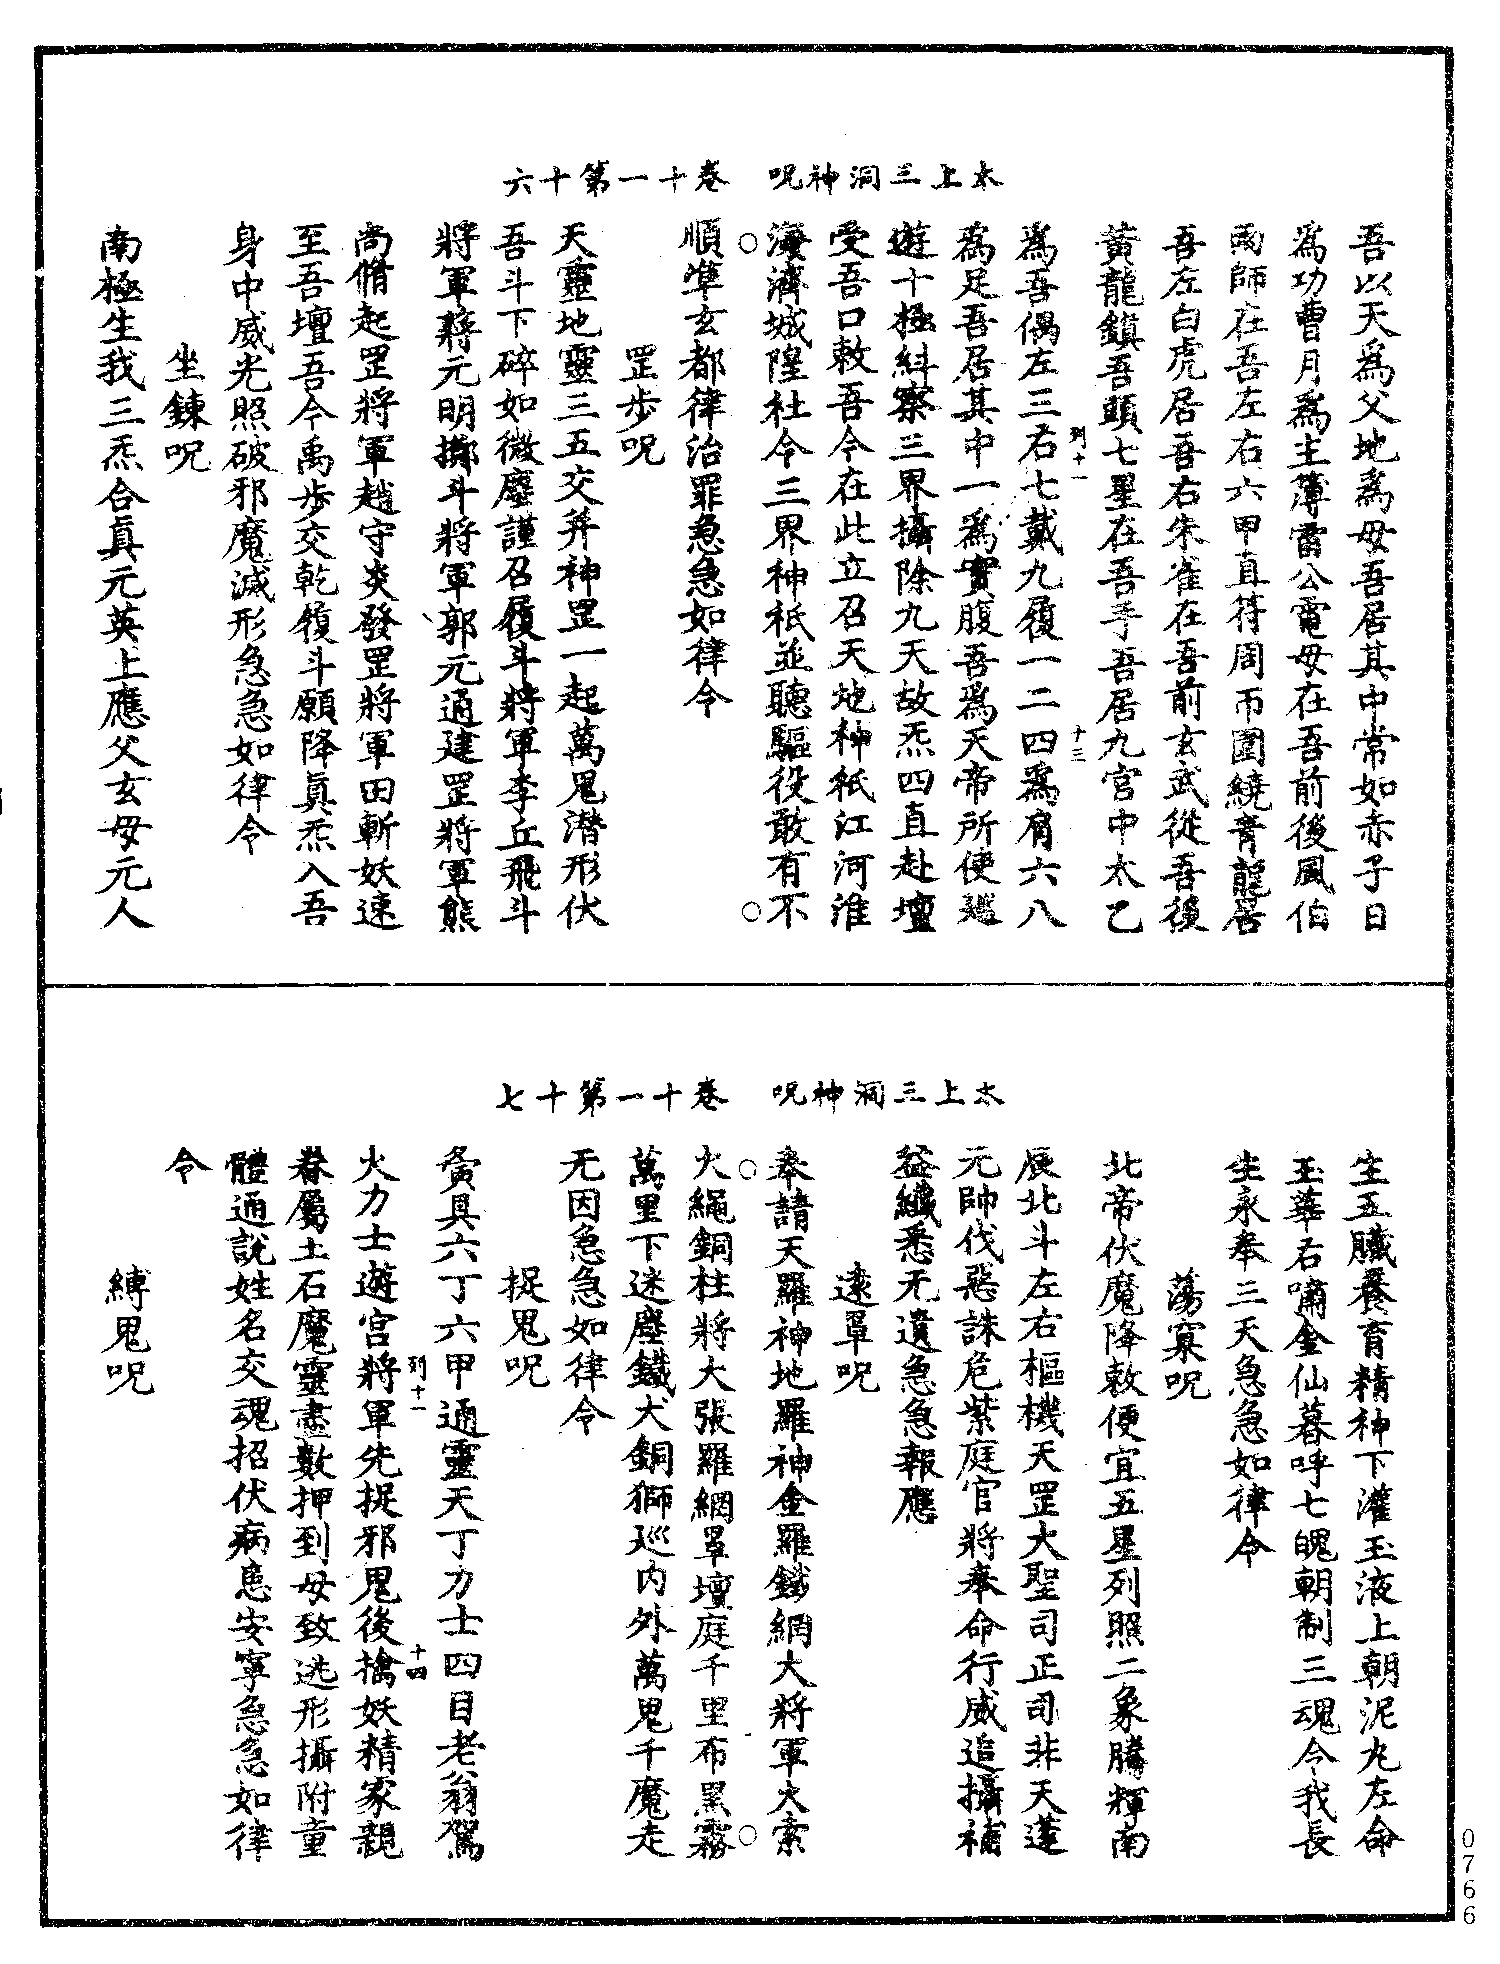 太上三洞神呪　卷十一第十六
吾以天爲父地爲母吾居其中常如赤子日
爲功曹月爲主簿雷公電母在吾前後風伯
雨師在吾左右六甲直符周帀圍繞青龍居
吾左白虎居吾右朱雀在吾前玄武從吾後
黃龍鎮吾頭七星在吾手吾居九宮中太乙
列十一　十三
爲吾偶左三右七戴九履一二四爲肩六八
爲足吾居其中一爲實腹吾爲天帝所使廵
遊十極糾察三界攝除九天故炁四直赴壇
受吾口敕吾今在此立召天地神祇江河淮
海濟城隍社令三界神祇並聽驅役敢有不
○　○
順準玄都律治罪急急如律令
罡步呪
天靈地靈三五交并神罡一起萬鬼潛形伏
吾斗下碎如微塵謹召履斗將軍李丘飛斗
將軍蔣元明擲斗將軍郭元通建罡將軍熊
尚脩起罡將軍趙守炎發罡將軍田斬妖速
至吾壇吾今禹步交乾履斗願降眞炁入吾
身中威光照破邪魔滅形急急如律令
坐鍊呪
南極生我三炁合眞元英上應父玄母元人
太上三洞神呪　卷十一第十七
生五臟養育精神下灌玉液上朝泥丸左命
玉華右嘯金仙暮呼七魄朝制三魂令我長
生永奉三天急急如律令
蕩穼呪
北帝伏魔降敕便宜五星列照二象騰輝南
辰北斗左右樞機天罡大聖司正司非天蓬
元帥伐惡誅危紫庭官將奉命行威追攝補
益纎悉无遺急急報應
逺罩呪
奉請天羅神地羅神金羅鐵網大將軍火索
○　○
火繩銅柱將大張羅網罩壇庭千里布黑霧
萬里下迷塵鐵犬銅獅巡內外萬鬼千魔走
无因急急如律令
捉鬼呪
夤具六丁六甲通靈天丁力士四目老翁駕
列十一　十四
火力士遊宮將軍先捉邪鬼後擒妖精家親
眷屬土石魔靈盡數押到毋致逃形攝附童
體通說姓名交魂招伏病患安寧急急如律
令
縛鬼呪
0766